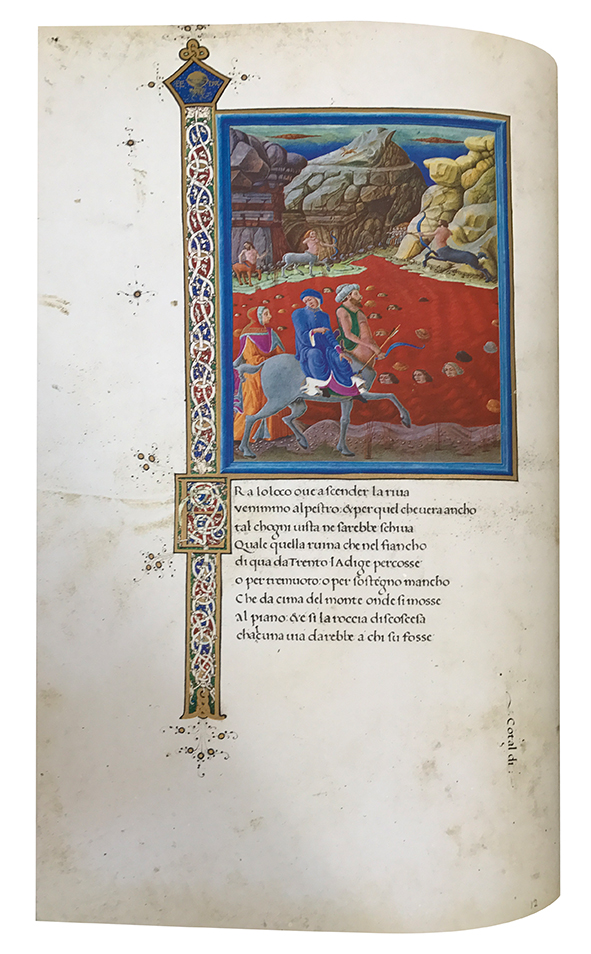 ERa loloco oue ascender la riua
venimmo alpestro: & per quel che uera ancho
tal chogni uista ne sarebbe schiua
Quale quella ruina che nel fiancho
di qua da Trento lAdige percosse
o per tremuoto: o per sostegno mancho
Che da cima del monte onde si mosse
al piano: & e si la roccia discoscesa
chalcuna uia darebbe a chi su fosse
Cotal di
12